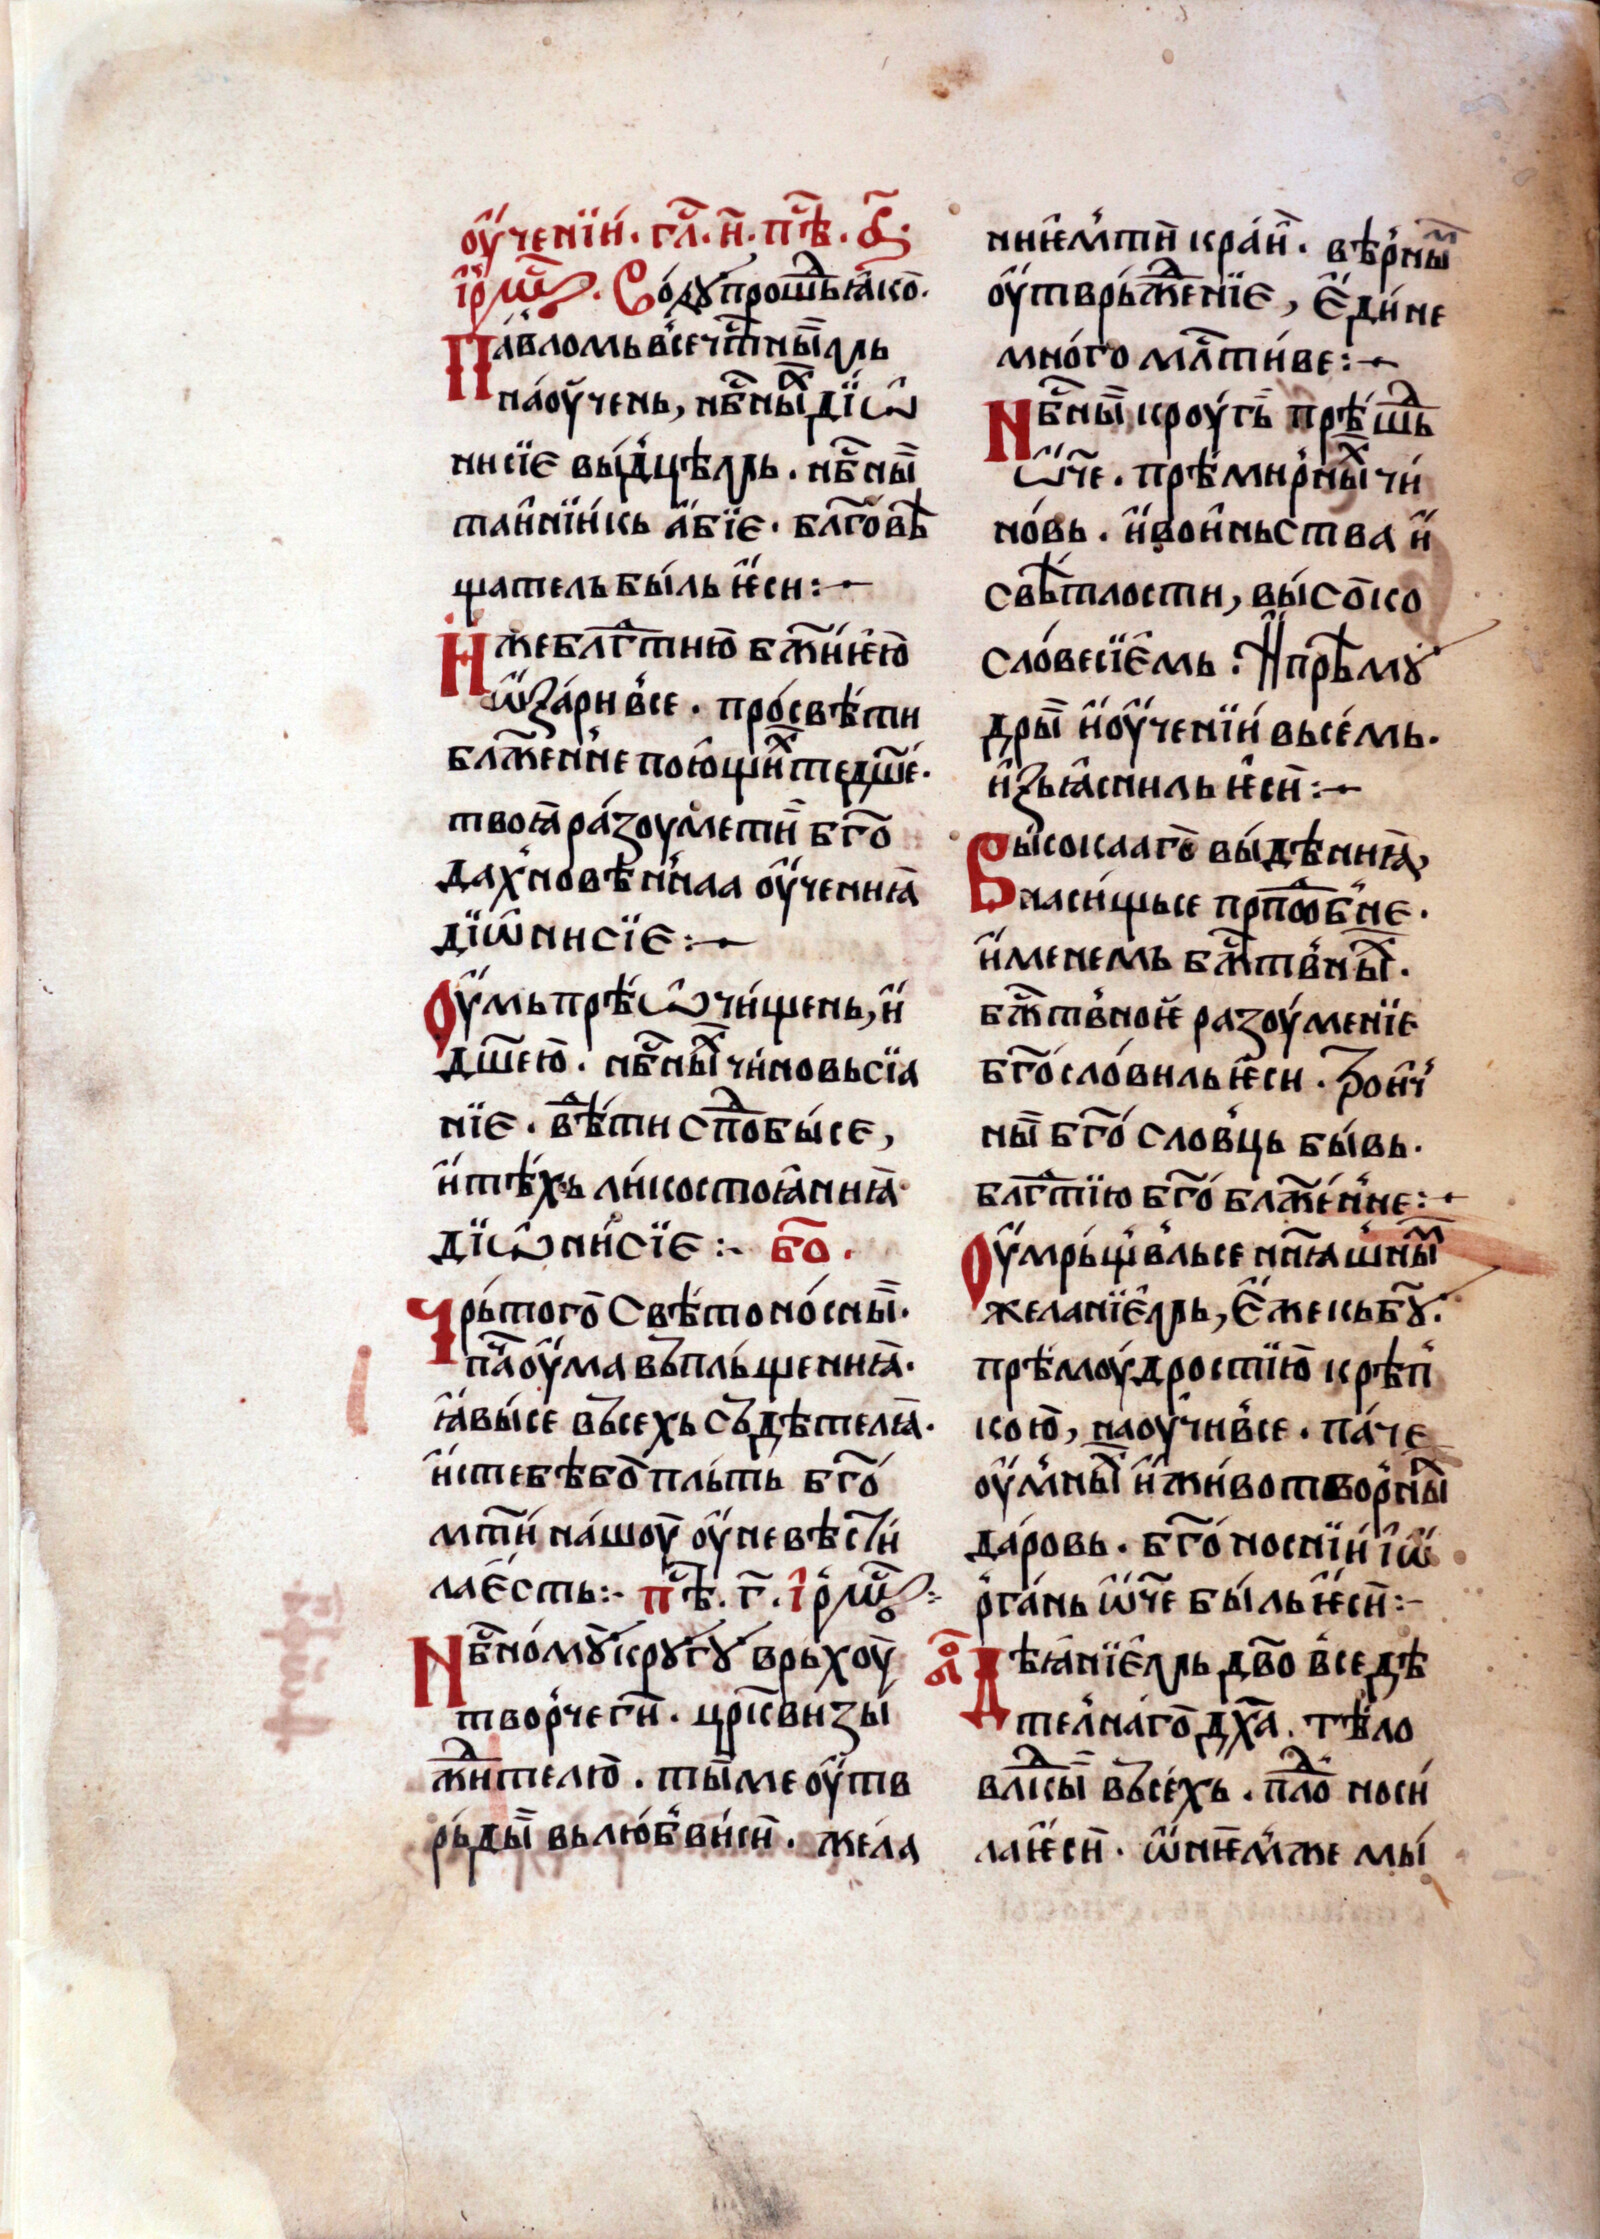 оу҆ченїи. гла҃. и҃. пѣ҃. а҃.
і҆рмо҃. Водꙋ прошьⷣ ꙗ҆ко.
Павломь всечⷭ҇тныⷨимь
наоу҆чень, нб҃ныⷯ дїѡ
нисїе выдцѣмь. нб҃ны
таинїикь а҆бїе. бл҃говѣ
щатель быль ѥ҆си:
Иже блгⷣтию бж҃иѥю
ѡ҆зари все. просвѣти
блж҃енне поющиⷯ те дш҃е.
твоꙗ разоумети бг҃о
дахновѣннаа оу҆чениꙗ
дїѡнисїе:
Оумь прѣѡчищень, и҆
дш҃ею. нб҃ныⷯ чиновь сїа
нїе. вⷣѣти спⷣобы се,
и҆ тѣхь ликостоꙗниꙗ
дїѡнисїе:- бо҃.
Чрьтого свѣтоносны.
пл҃а оу҆ма въпльщениꙗ.
ꙗ҆вы се въсехь съдѣтелꙗ.
и҆с тебѣ бо пльть бг҃о
мт҃и нашоу оу҆невѣсти
ла е҆сть:- пѣ҃. г҃. і҆рмо҃:
Нб҃номꙋ крꙋгꙋ врьхоу
творчеги. цр҃кви зы
жⷣителю. ты ме оу҆тв
рьды вь любви си. жела
ниѥмти краи. вѣрныⷨ
оу҆тврьжⷣенїе, е҆дине
много млⷭ҇тиве:
Нб҃ны кроугь прѣшьⷣ
ѡ҆ч҃е. прѣмирныⷯ чи
новь. и҆ воиньства и҆
свѣтлости, высоко
словесїемь. И прѣмꙋ
дры и҆ оу҆ченїи вьсемь.
и҆зьꙗсниль ѥ҆си:
Высокааго выдѣниꙗ,
насищьсе прпⷣобне.
и҆менемь бжⷭ҇твныⷯ.
бжⷭ҇твное разоуменїе
бг҃ословиль ѥ҆си. Троич
ны бг҃ословць бывь.
блгⷣтїю бг҃облж҃енне:
Оумрьщвль се нн҃ꙗшныⷨ
желанїемь, е҆же кь бг҃ꙋ.
прѣмоудростїю крѣп
кою, наоучивсе. паче
оу҆мныⷯ и҆ животворныⷯ
даровь. бг҃оноснїи і҆ѡ҆
рⷢань ѡ҆ч҃е быль ѥ҆си:-
Дѣꙗнїемь дв҃о вседѣ
телнаго дх҃а. тѣло
влⷣкы въсехь. плоⷣ носи
ла ѥ҆си. ѡ҆ ниѥмже мы